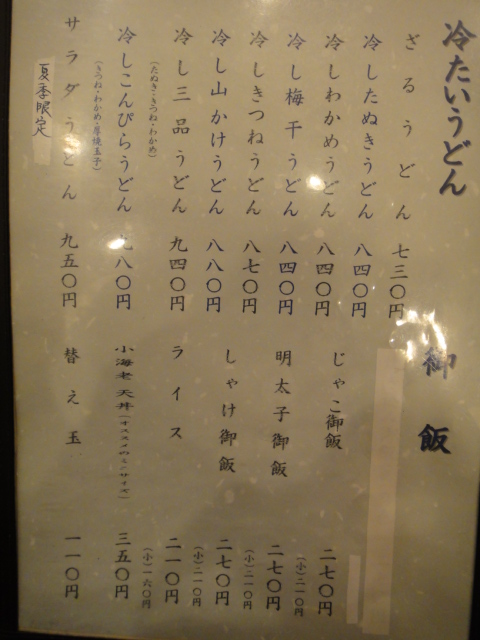 冷たいうどん
ざるうどん 七三〇円
冷したぬきうどん 八四〇円
冷しわかめうどん 八四〇円
冷し梅干うどん 八四〇円
冷しきつねうどん 八七〇円
冷し山かけうどん 八八〇円
冷し三品うどん 九四〇円
(たぬき・きつね・わかめ)
冷しこんぴらうどん 九八〇円
(きつね・わかめ・厚焼玉子)
サラダうどん 九五〇円
夏季限定
御飯
じゃこ御飯 二七〇円
(小)二一〇円
明太子御飯 二七〇円
(小)二一〇円
しゃけ御飯 二七〇円
(小)二一〇円
ライス 二一〇円
(小)一六〇円
小海老天丼(オススメのミニサイズ) 三五〇円
替え玉 一一〇円